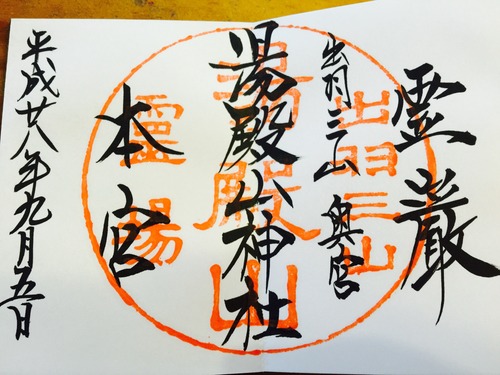 霊巌
出羽三山 奥宮
湯殿山神社
本宮
平成廿八年九月五日
出羽三山
湯殿山
靈湯